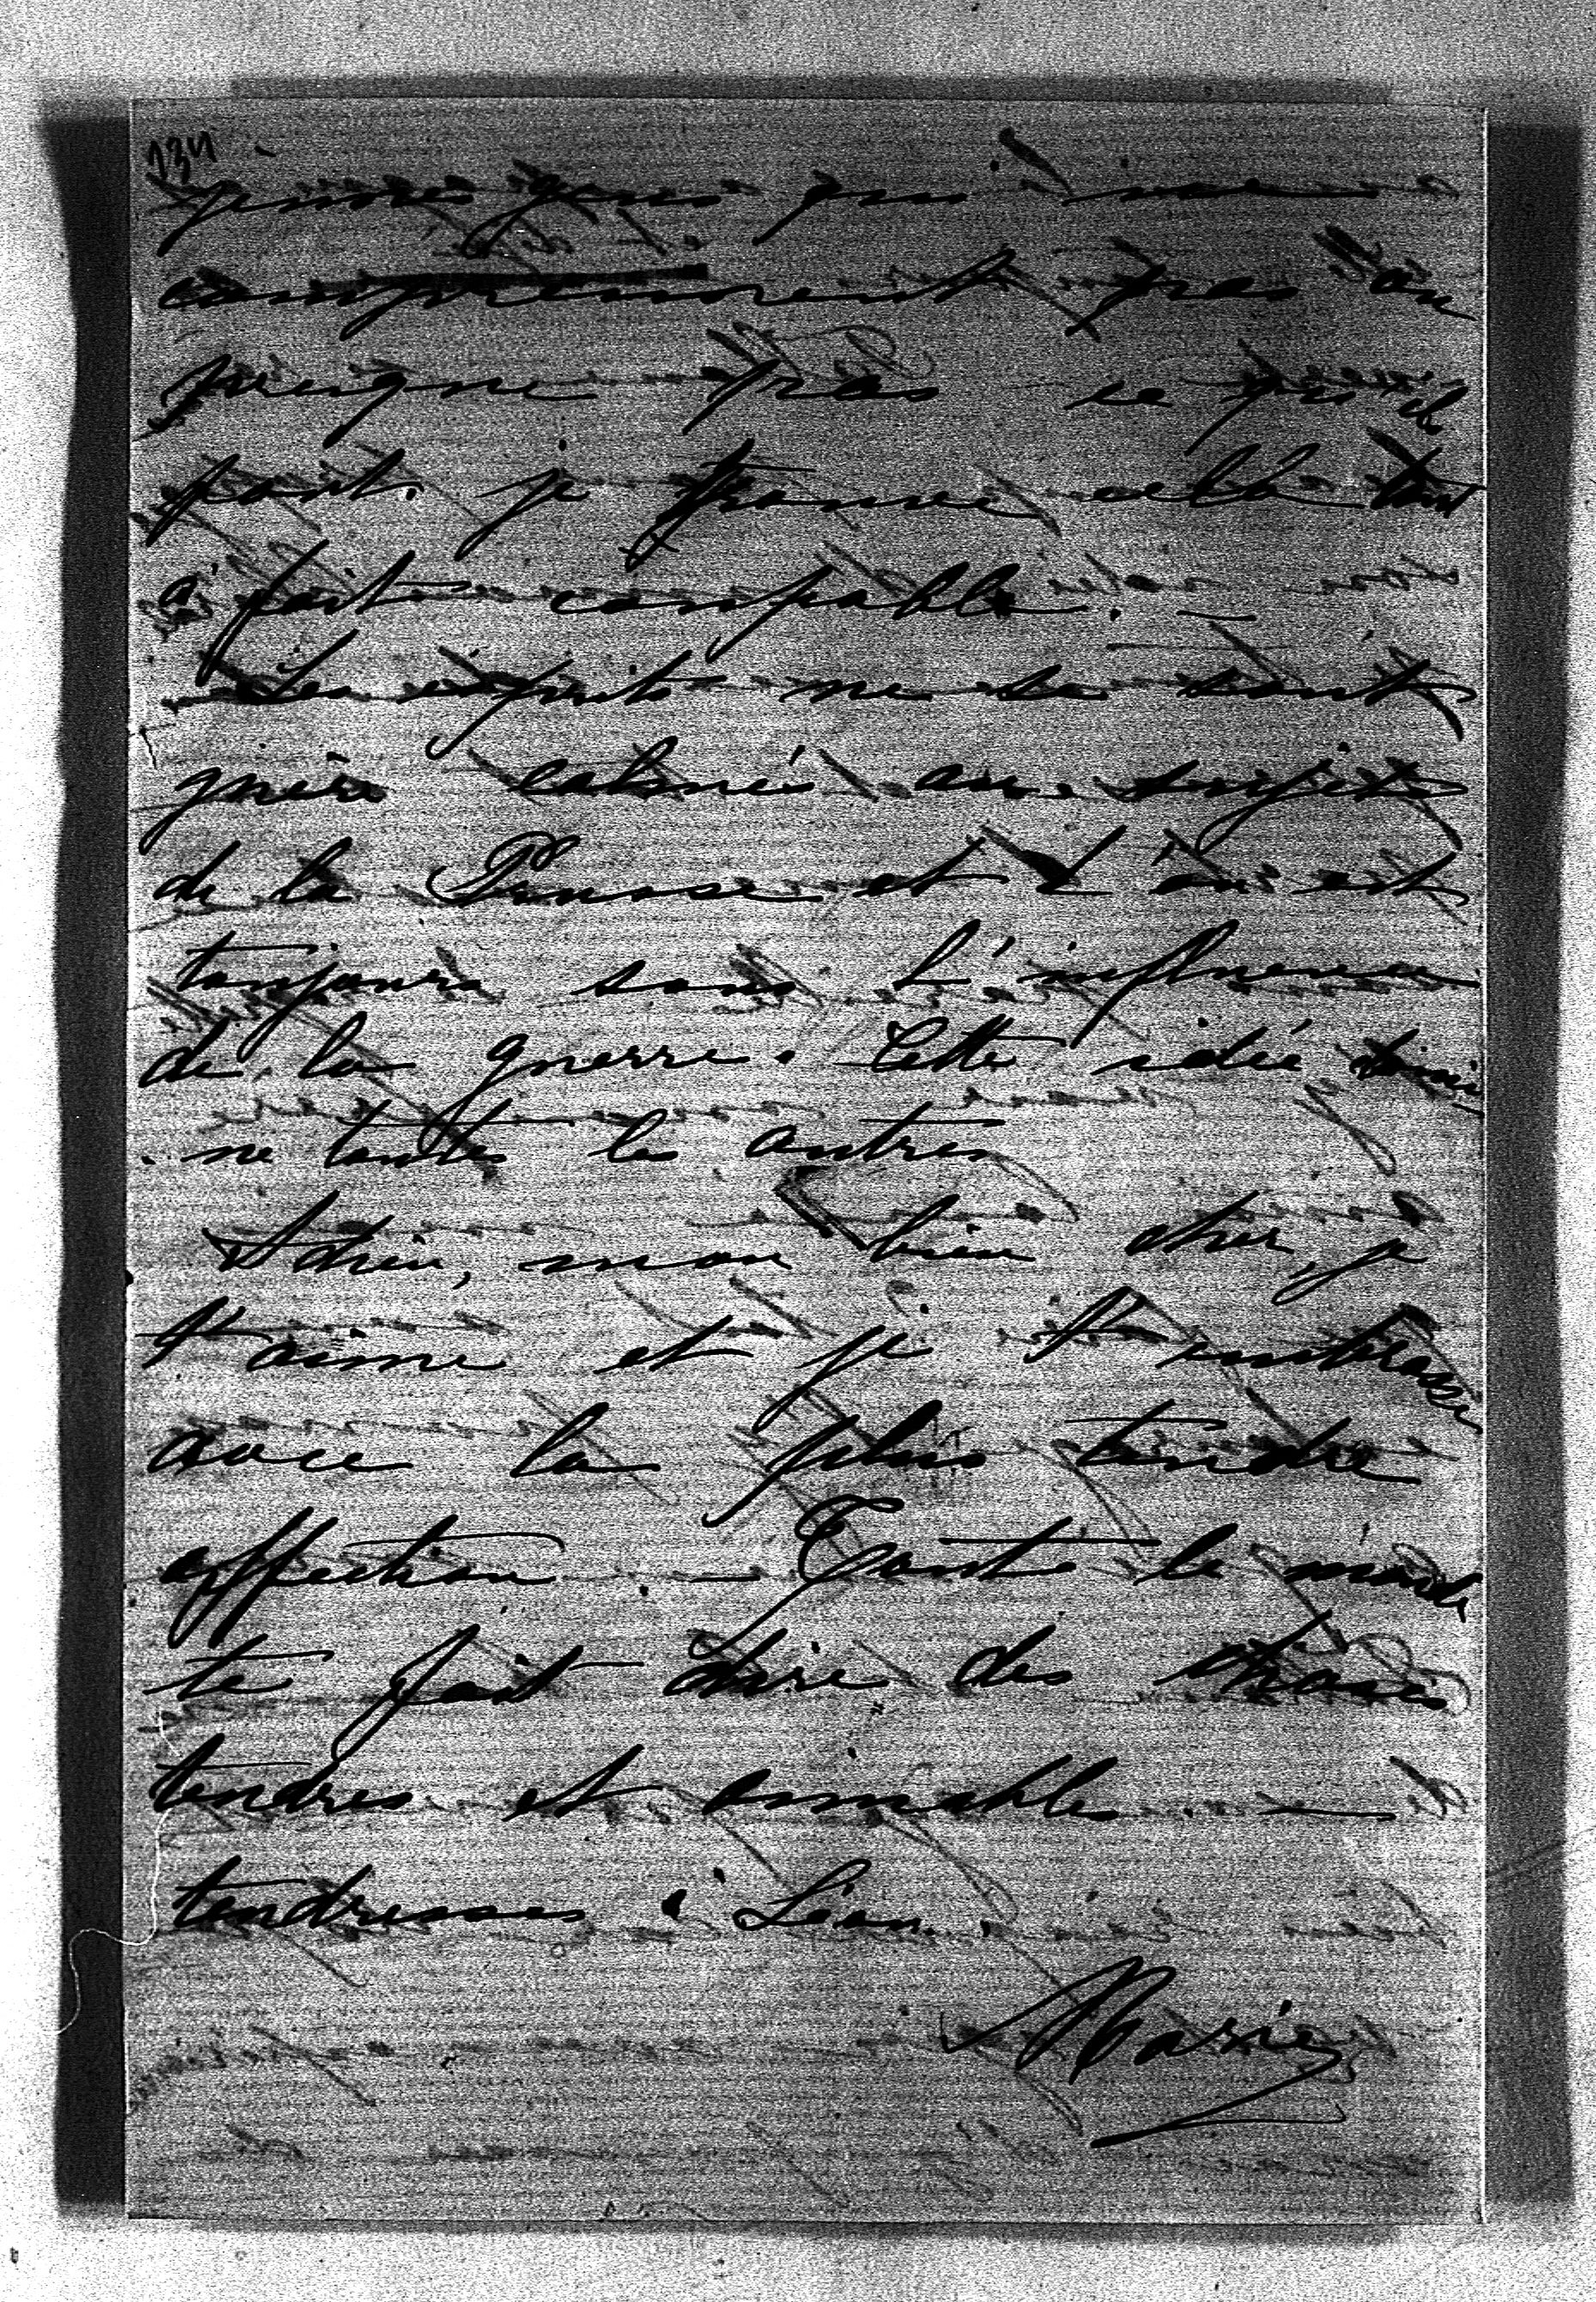 134
jeunes gens qui ne
comprennent pas ou
prengne pas ce qu'ils
font. je trouve cela tout
a' fait coupable. —
Les esprits ne se sont
guère calmés au sujet
de la Prusse et l'on est
toujours sous l'influence
de la guerre. Cette idée domi
ne toutes les autres
Adieu, mon bien cher, je
t'aime et je t'embrasse
avec la plus tendre
affection. — Tout le monde
te fait dire des choses
tendres et aimables —
tendresses à Léon.
Marie